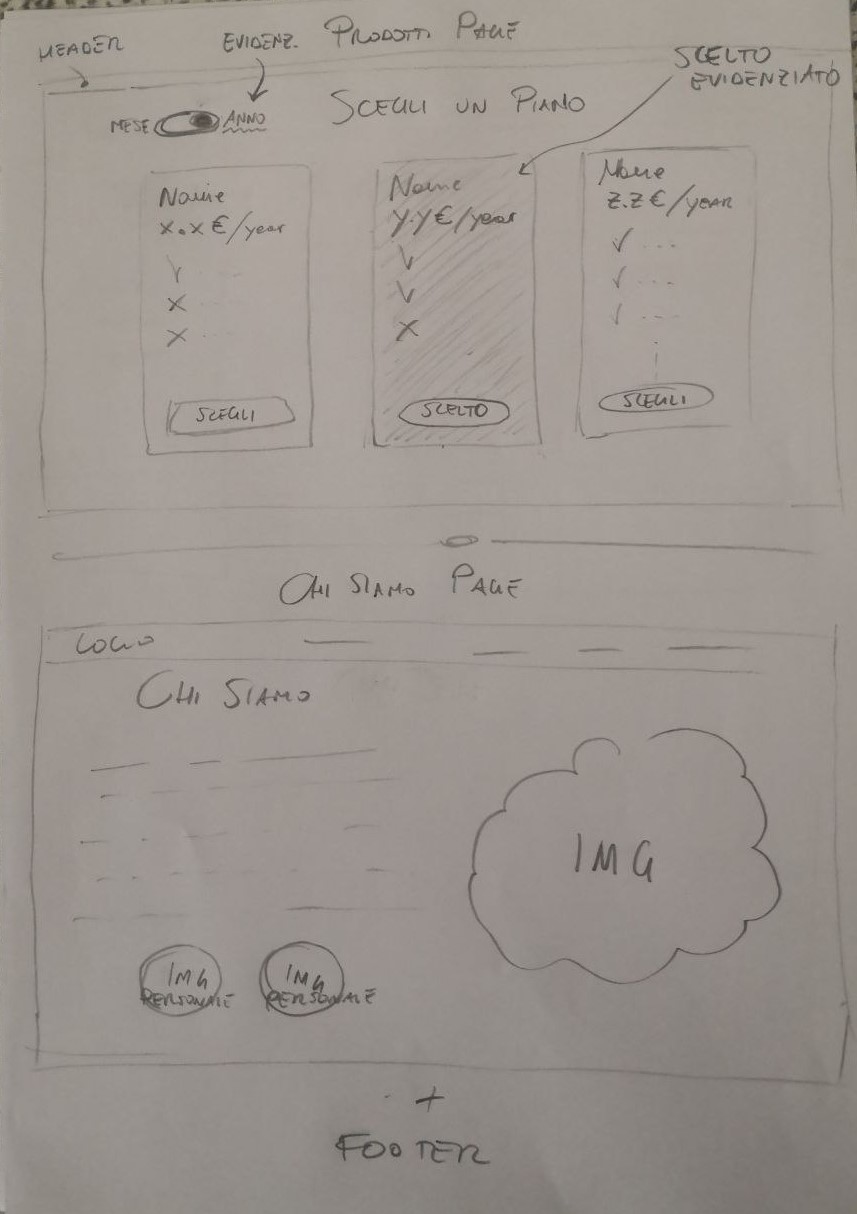 HEADER
EVIDENZ.
PRODOTTI PAGE
SCELTO
EVIDENZIATO
MESE
ANNO
SCEGLI UN PIANO
Name
x.x €/year
V
X
X
SCEGLI
Name
y.y €/year
V
V
X
SCELTO
Name
z.z €/YEAR
✓ ...
✓ ...
✓ ...
SCEGLI
CHI SIAMO PAGE
LOGO
CHI SIAMO
IMG
IMG
PERSONALE
IMG
PERSONALE
+
FOOTER